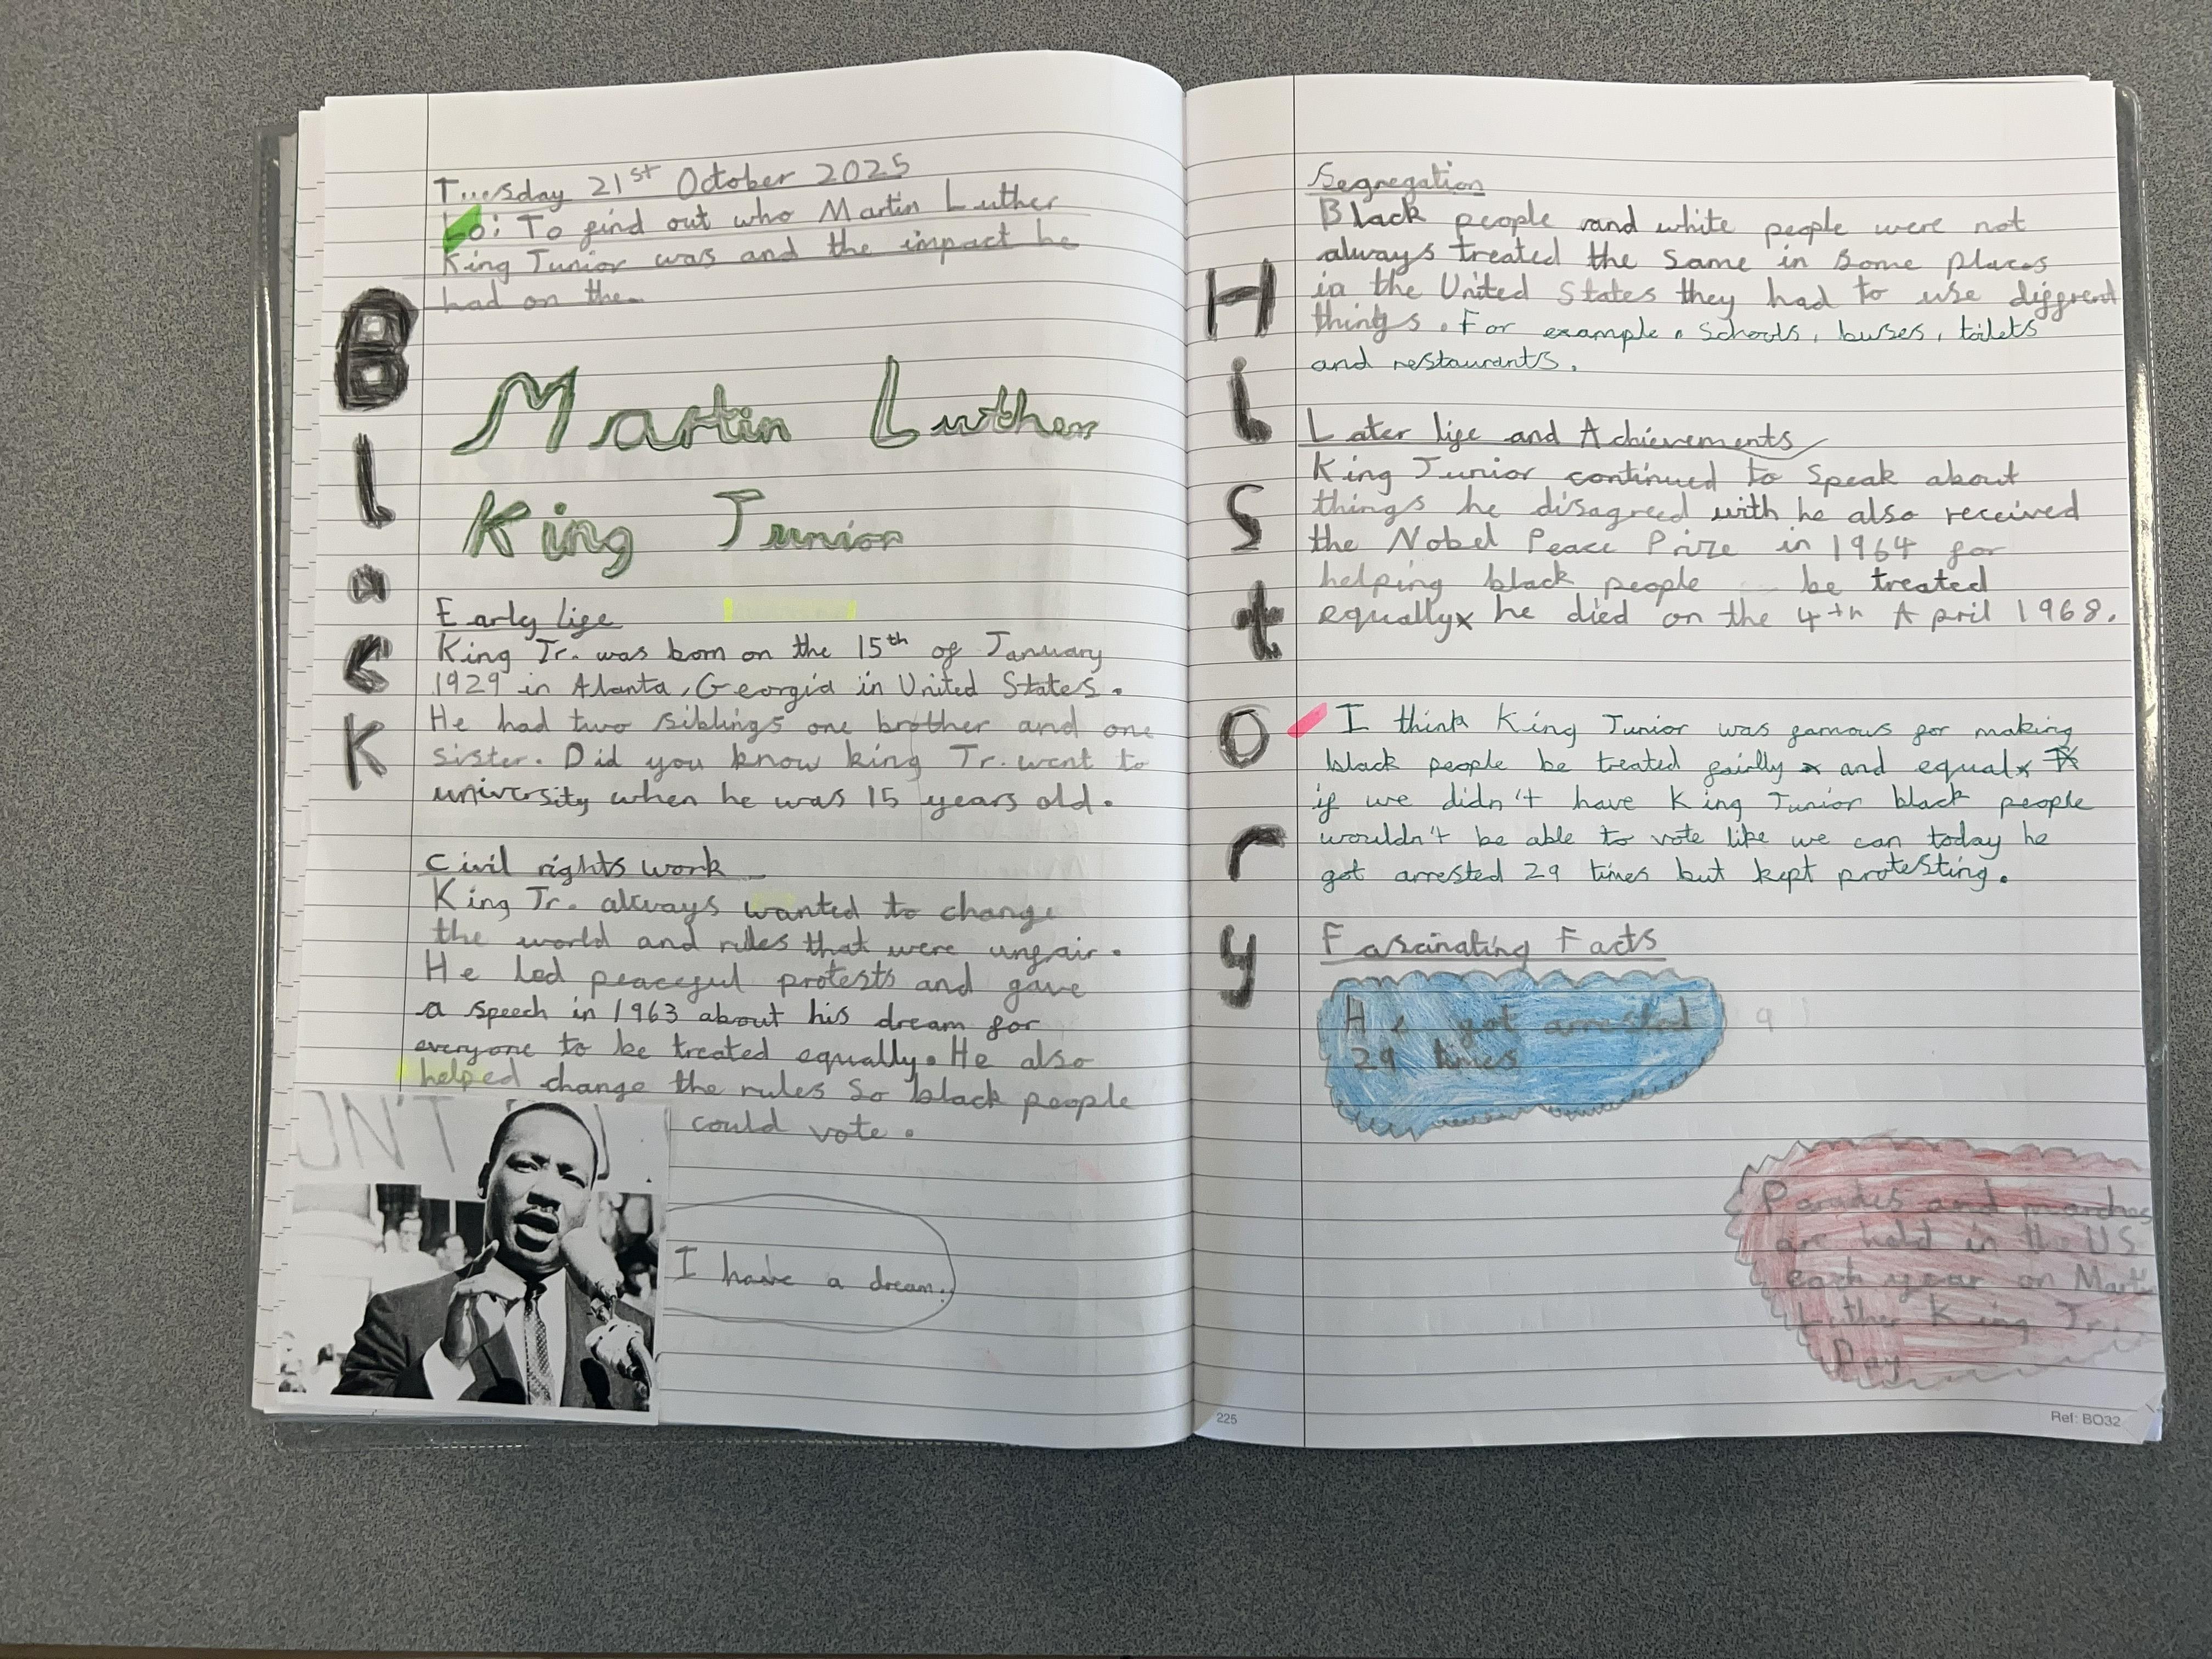 Tuesday 21st October 2025
Lo: To find out who Martin Luther
King Junior was and the impact he
had on the
Black
Martin Luther
King Junior
Early life
King Jr. was born on the 15th of January
1929 in Atlanta, Georgia in United States.
He had two siblings one brother and one
sister. Did you know king Jr. went to
university when he was 15 years old.
Civil rights work
King Jr. always wanted to change
the world and rules that were unfair.
He led peaceful protests and gave
a speech in 1963 about his dream for
everyone to be treated equally. He also
helped change the rules so black people
could vote.
ON'T
I have a dream.
History
Segregation
Black people and white people were not
always treated the same in some places
in the United States they had to use diffrent
things. For example. Schools, buses, toilets
and restaurants.
Later life and Achievements
King Junior continued to speak about
things he disagreed with he also received
the Nobel Peace Prize in 1964 for
helping black people be treated
equally he died on the 4th April 1968.
I think King Junior was famous for making
black people be treated fairlly and equal
if we didn't have King Junior black people
wouldn't be able to vote like we can today he
got arrested 29 times but kept protesting.
Fascinating Facts
He got arrested
29 times
Parades and marches
are held in the US
each year on Martin
Luther King Jr.
Day
225
Ref: BO32